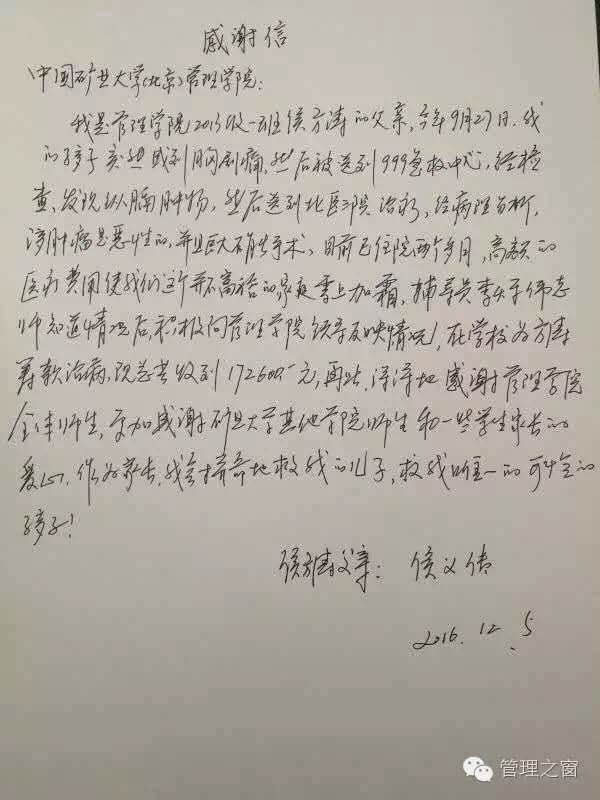 感谢信
中国矿业大学(北京)管理学院:
我是管理学院2013级一班侯方涛的父亲,今年9月27日,我
的孩子突然感到胸剧痛,然后被送到999急救中心,经检
查、发现纵膈肿物,然后送到北医三院治疗,经病理分析,
该肿瘤是恶性的,并且巨大难做手术、目前已住院两个多月,高额的
医疗费用使我们这个并不富裕的家庭雪上加霜,辅导员李乐平伟志
师知道情况后,积极向管理学院领导反映情况,在学校为方涛
筹款治病,现总共收到172600元,再次、深深地感谢管理学院
全体师生,更加感谢矿业大学其他学院师生和一些学生家长的
爱心,作为家长,我会拼命地救我的儿子,救我唯一的可怜的
孩子!
侯方涛父亲: 侯义传
2016.12.5
管理之窗